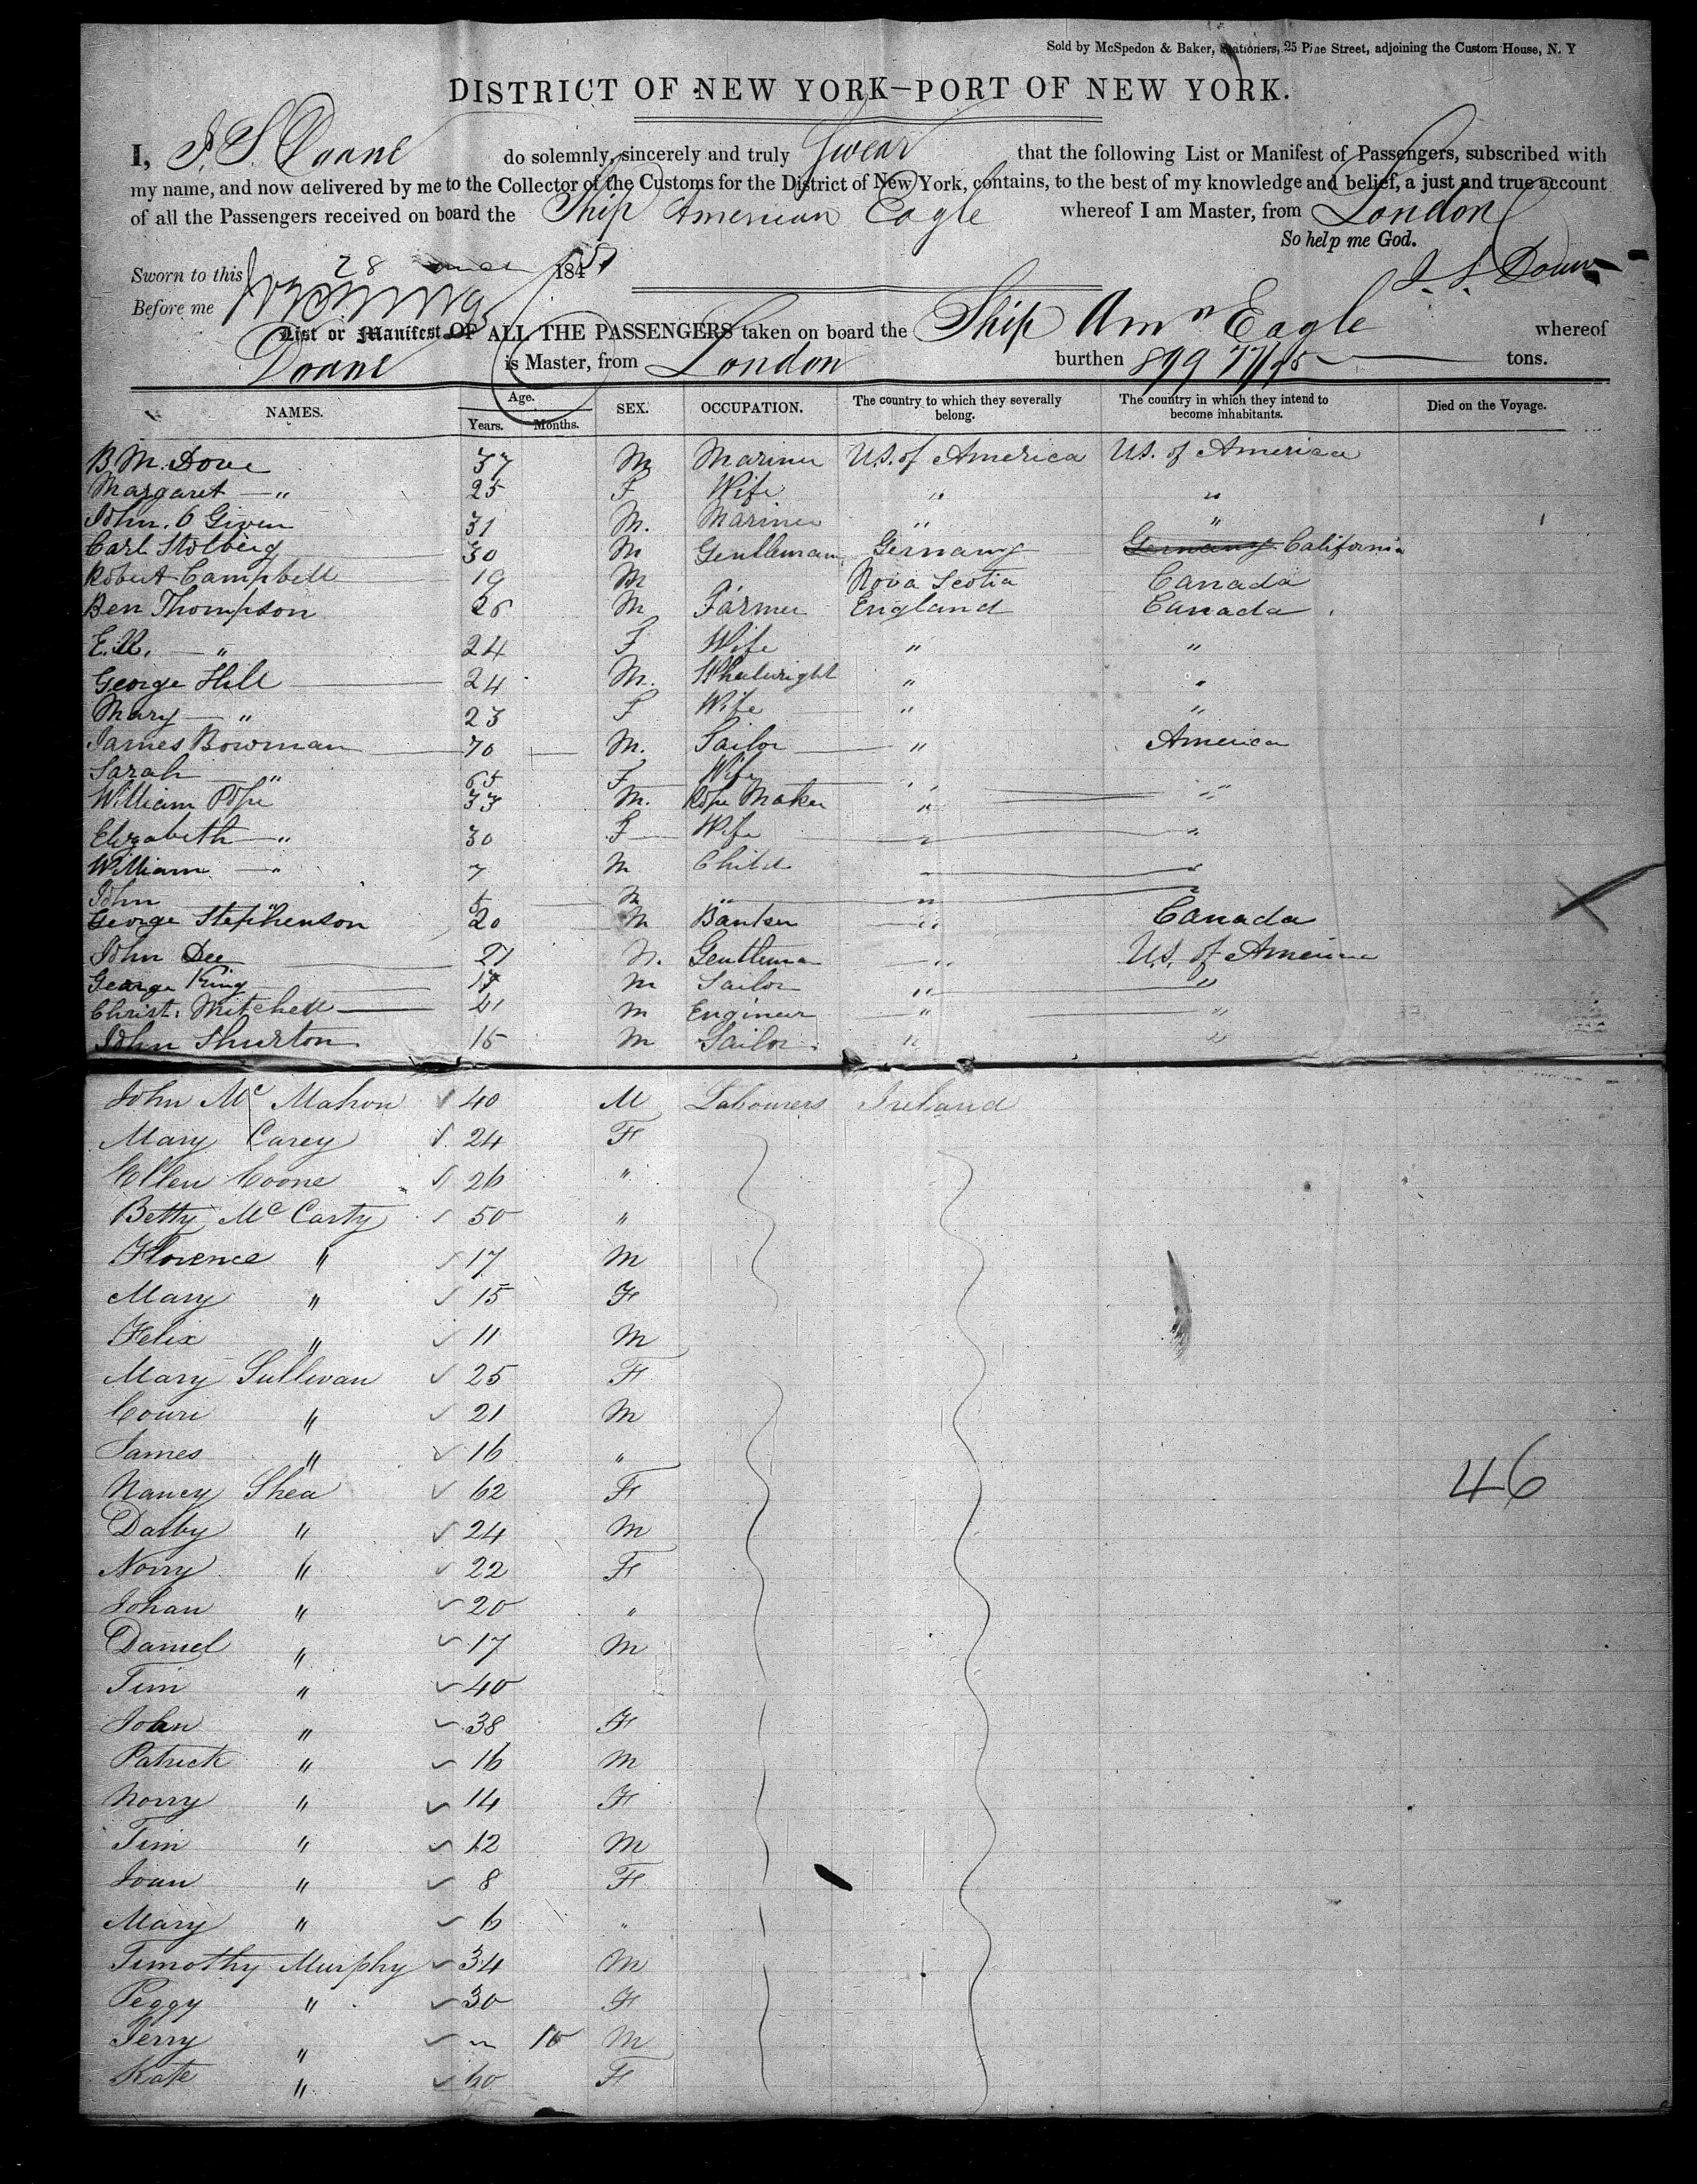 Sold by McSpedon & Baker, Stationers, 25 Pine Street, adjoining the Custom House, N. Y
DISTRICT OF NEW YORK—PORT OF NEW YORK.
I, J. S. Doane do solemnly, sincerely and truly Swear that the following List or Manifest of Passengers, subscribed with
my name, and now delivered by me to the Collector of the Customs for the District of New York, contains, to the best of my knowledge and belief, a just and true account
of all the Passengers received on board the Ship American Eagle whereof I am Master, from London
So help me God.
Sworn to this 28 184
J. S. Doane
Before me
List or Manifest OF ALL THE PASSENGERS taken on board the Ship Amn Eagle whereof
Doane is Master, from London burthen 899 77/95 tons.
NAMES. Age. Years. Months. SEX. OCCUPATION. The country to which they severally belong. The country in which they intend to become inhabitants. Died on the Voyage.
B. M. Dove 37 M Mariner U.S. of America U.S. of America
Margaret — " 25 F Wife " "
John. O Given 31 M. Mariner " "
Carl Stolberg 30 M Gentleman Germany Germany California
Robert Campbell 19 M " Nova Scotia Canada
Ben Thompson 26 M Farmer England Canada
E. R. — " 24 F Wife " "
George Hill 24 M. Whelwright " "
Mary — " 23 F Wife " "
James Bowman 70 M. Sailor " America
Sarah — " 65 F Wife " "
William Pope 33 M. Rope Maker " "
Elizabeth — " 30 F Wife " "
William — " 7 M Child " "
John " 5 M " " "
George Stephenson 20 M Banker " Canada
John Dee 21 M. Gentleman " U.S. of America
George King 17 M Sailor " "
Christ: Mitchell 21 M Engineer " "
John Thurton 15 M Sailor " "
John Mc Mahon 40 M Labourers Ireland
Mary Carey 24 F
Ellen Coone 26 "
Betty Mc Carty 50 "
Florence " 17 M
Mary " 15 F
Felix " 11 M
Mary Sullivan 25 F
" 21 M
James " 16 "
Nancy Shea 62 F
46
Darby " 24 M
Norry " 22 F
Johan " 20 "
Daniel " 17 M
Tim " 40
Johan " 38 F
Patrick " 16 M
Norry " 14 F
Tim " 12 M
Joan " 8 F
Mary " 6 "
Timothy Murphy 34 M
Peggy " 30 F
Jerry " " 10 M
Kate " 60 F